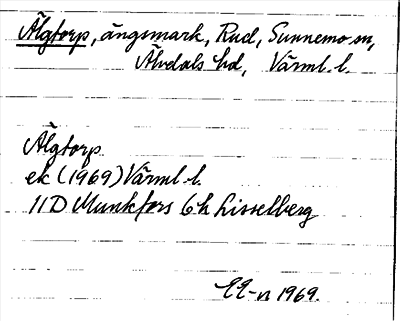 Älgtorp, ängsmark, Rud, Sunnemo sn,
Älvdals hd, Värml. l.
Älgtorp
ek (1969) Värml. l.
11D Munkfors 6 h Lisselberg
EE-n 1969.